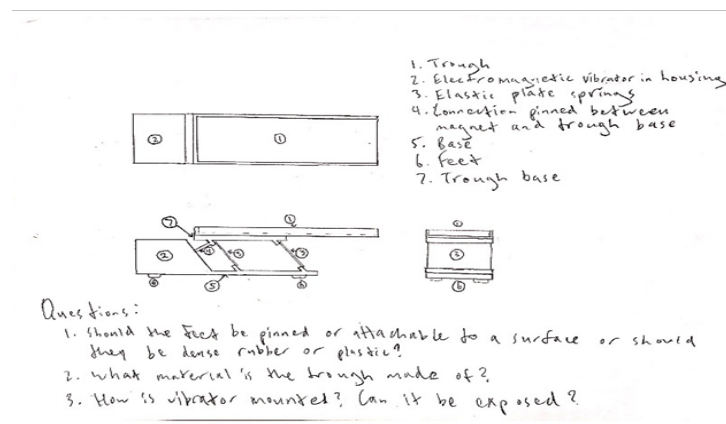 1. Trough
2. Electromagnetic vibrator in housing
3. Elastic plate springs
4. Connection pinned between
magnet and trough base
5. Base
6. Feet
7. Trough base
2
1
7
1
2
4
3
3
3
6
5
6
6
Questions:
1. Should the feet be pinned or attachable to a surface or should
they be dense rubber or plastic?
2. What material is the trough made of?
3. How is vibrator mounted? Can it be exposed?